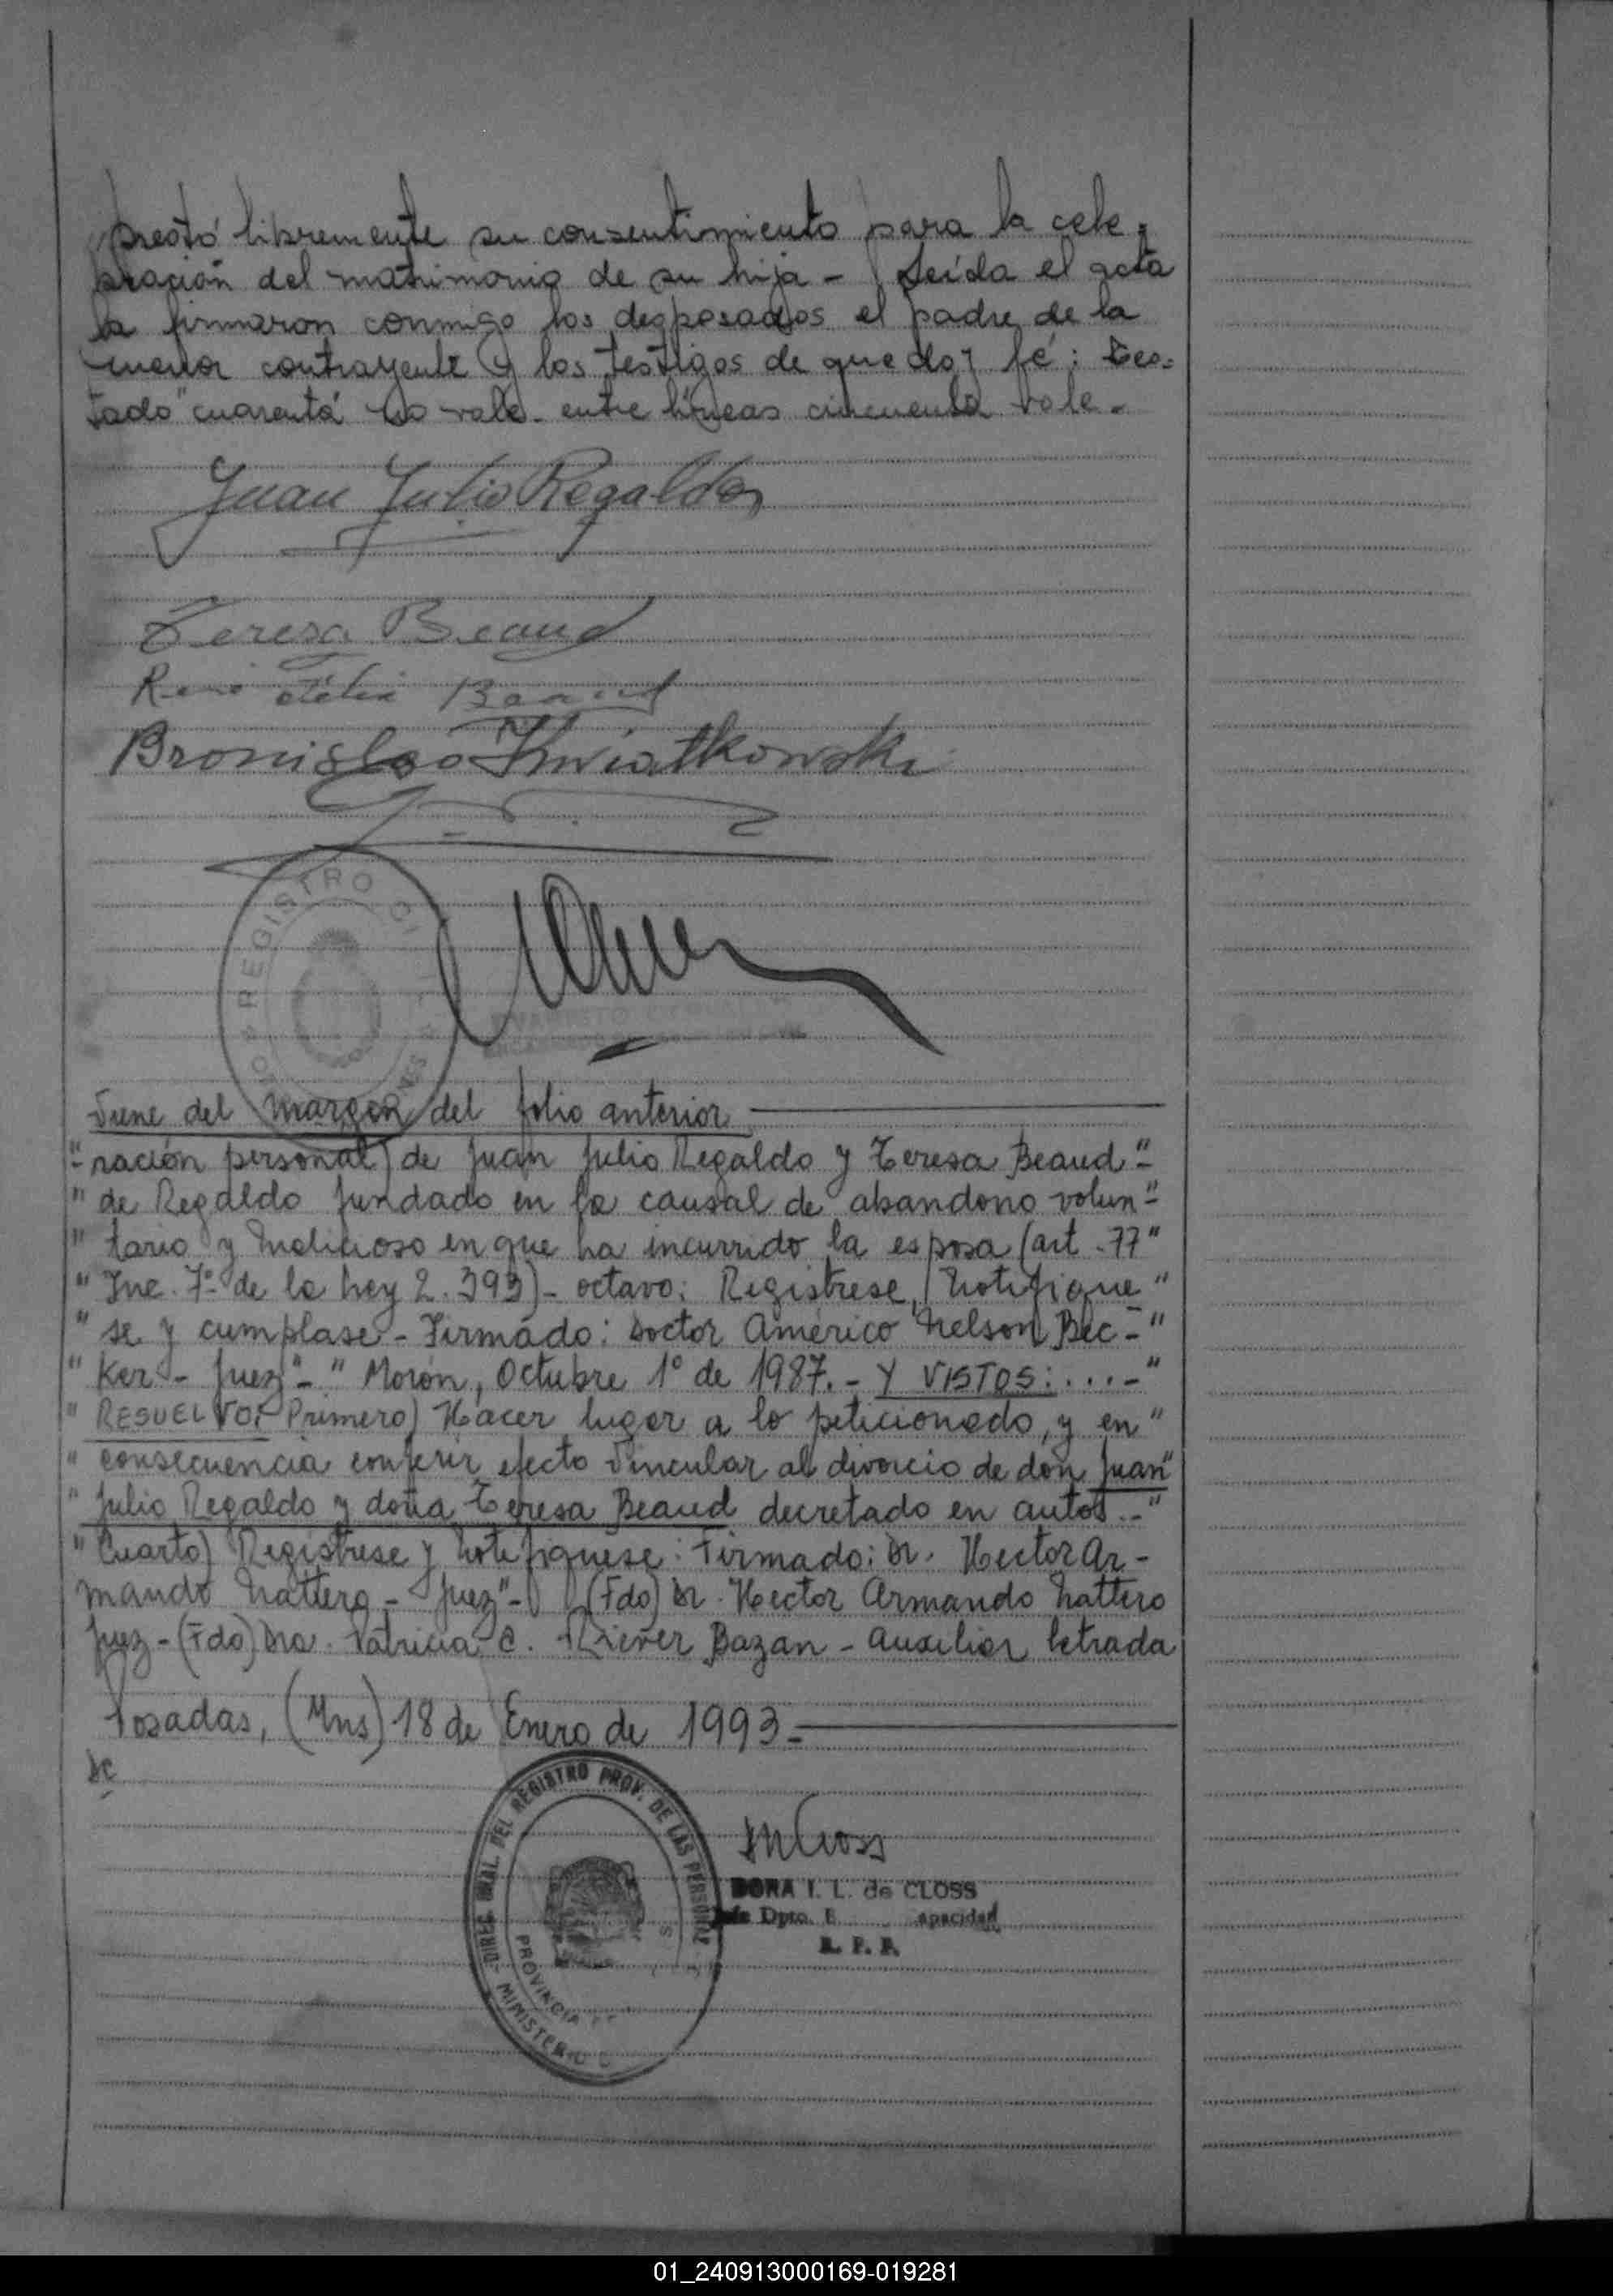 prestó libremente su consentimiento para la cele-
bración del matrimonio de su hija - Leída el acta
la firmaron conmigo los desposados el padre de la
menor contrayente y los testigos de que doy fé: Tes-
tado "cuarenta" no vale - entre líneas cincuenta vale -
Juan Julio Regaldo
Teresa Beaud
René Félix Beaud
Bronislao Kwiatkowski
REGISTRO CI
Viene del margen del folio anterior
"-ración personal) de Juan Julio Regaldo y Teresa Beaud-"
" de Regaldo fundado en la causal de abandono volun-"
" tario y malicioso en que ha incurrido la esposa (art. 77"
" Inc. 7º de la ley 2.393) - octavo: Regístrese, notifique"
" se y cumplase - Firmado: Doctor Américo Nelson Bec-"
" Ker - Juez" - " Morón, Octubre 1º de 1987. - Y VISTOS: ... -"
" RESUELVO: Primero) Hacer lugar a lo peticionado, y en"
" consecuencia conferir efecto vincular al divorcio de don Juan"
" Julio Regaldo y doña Teresa Beaud decretado en autos.-"
" Cuarto) Regístrese y notifíquese: Firmado: Dr. Hector Ar-
mando Nattero - Juez" - (Fdo) Dr. Hector Armando Nattero
Juez - (Fdo) Dra. Patricia C. Bazan - Auxiliar letrada
Posadas, (Mns) 18 de Enero de 1993 -
DIREC. GRAL. DEL REGISTRO PROV. DE LAS PERSONAS
PROVINCIA
MINISTERIO
DORA I. L. de CLOSS
Dpto. apacidad
R. P. P.
01_240913000169-019281